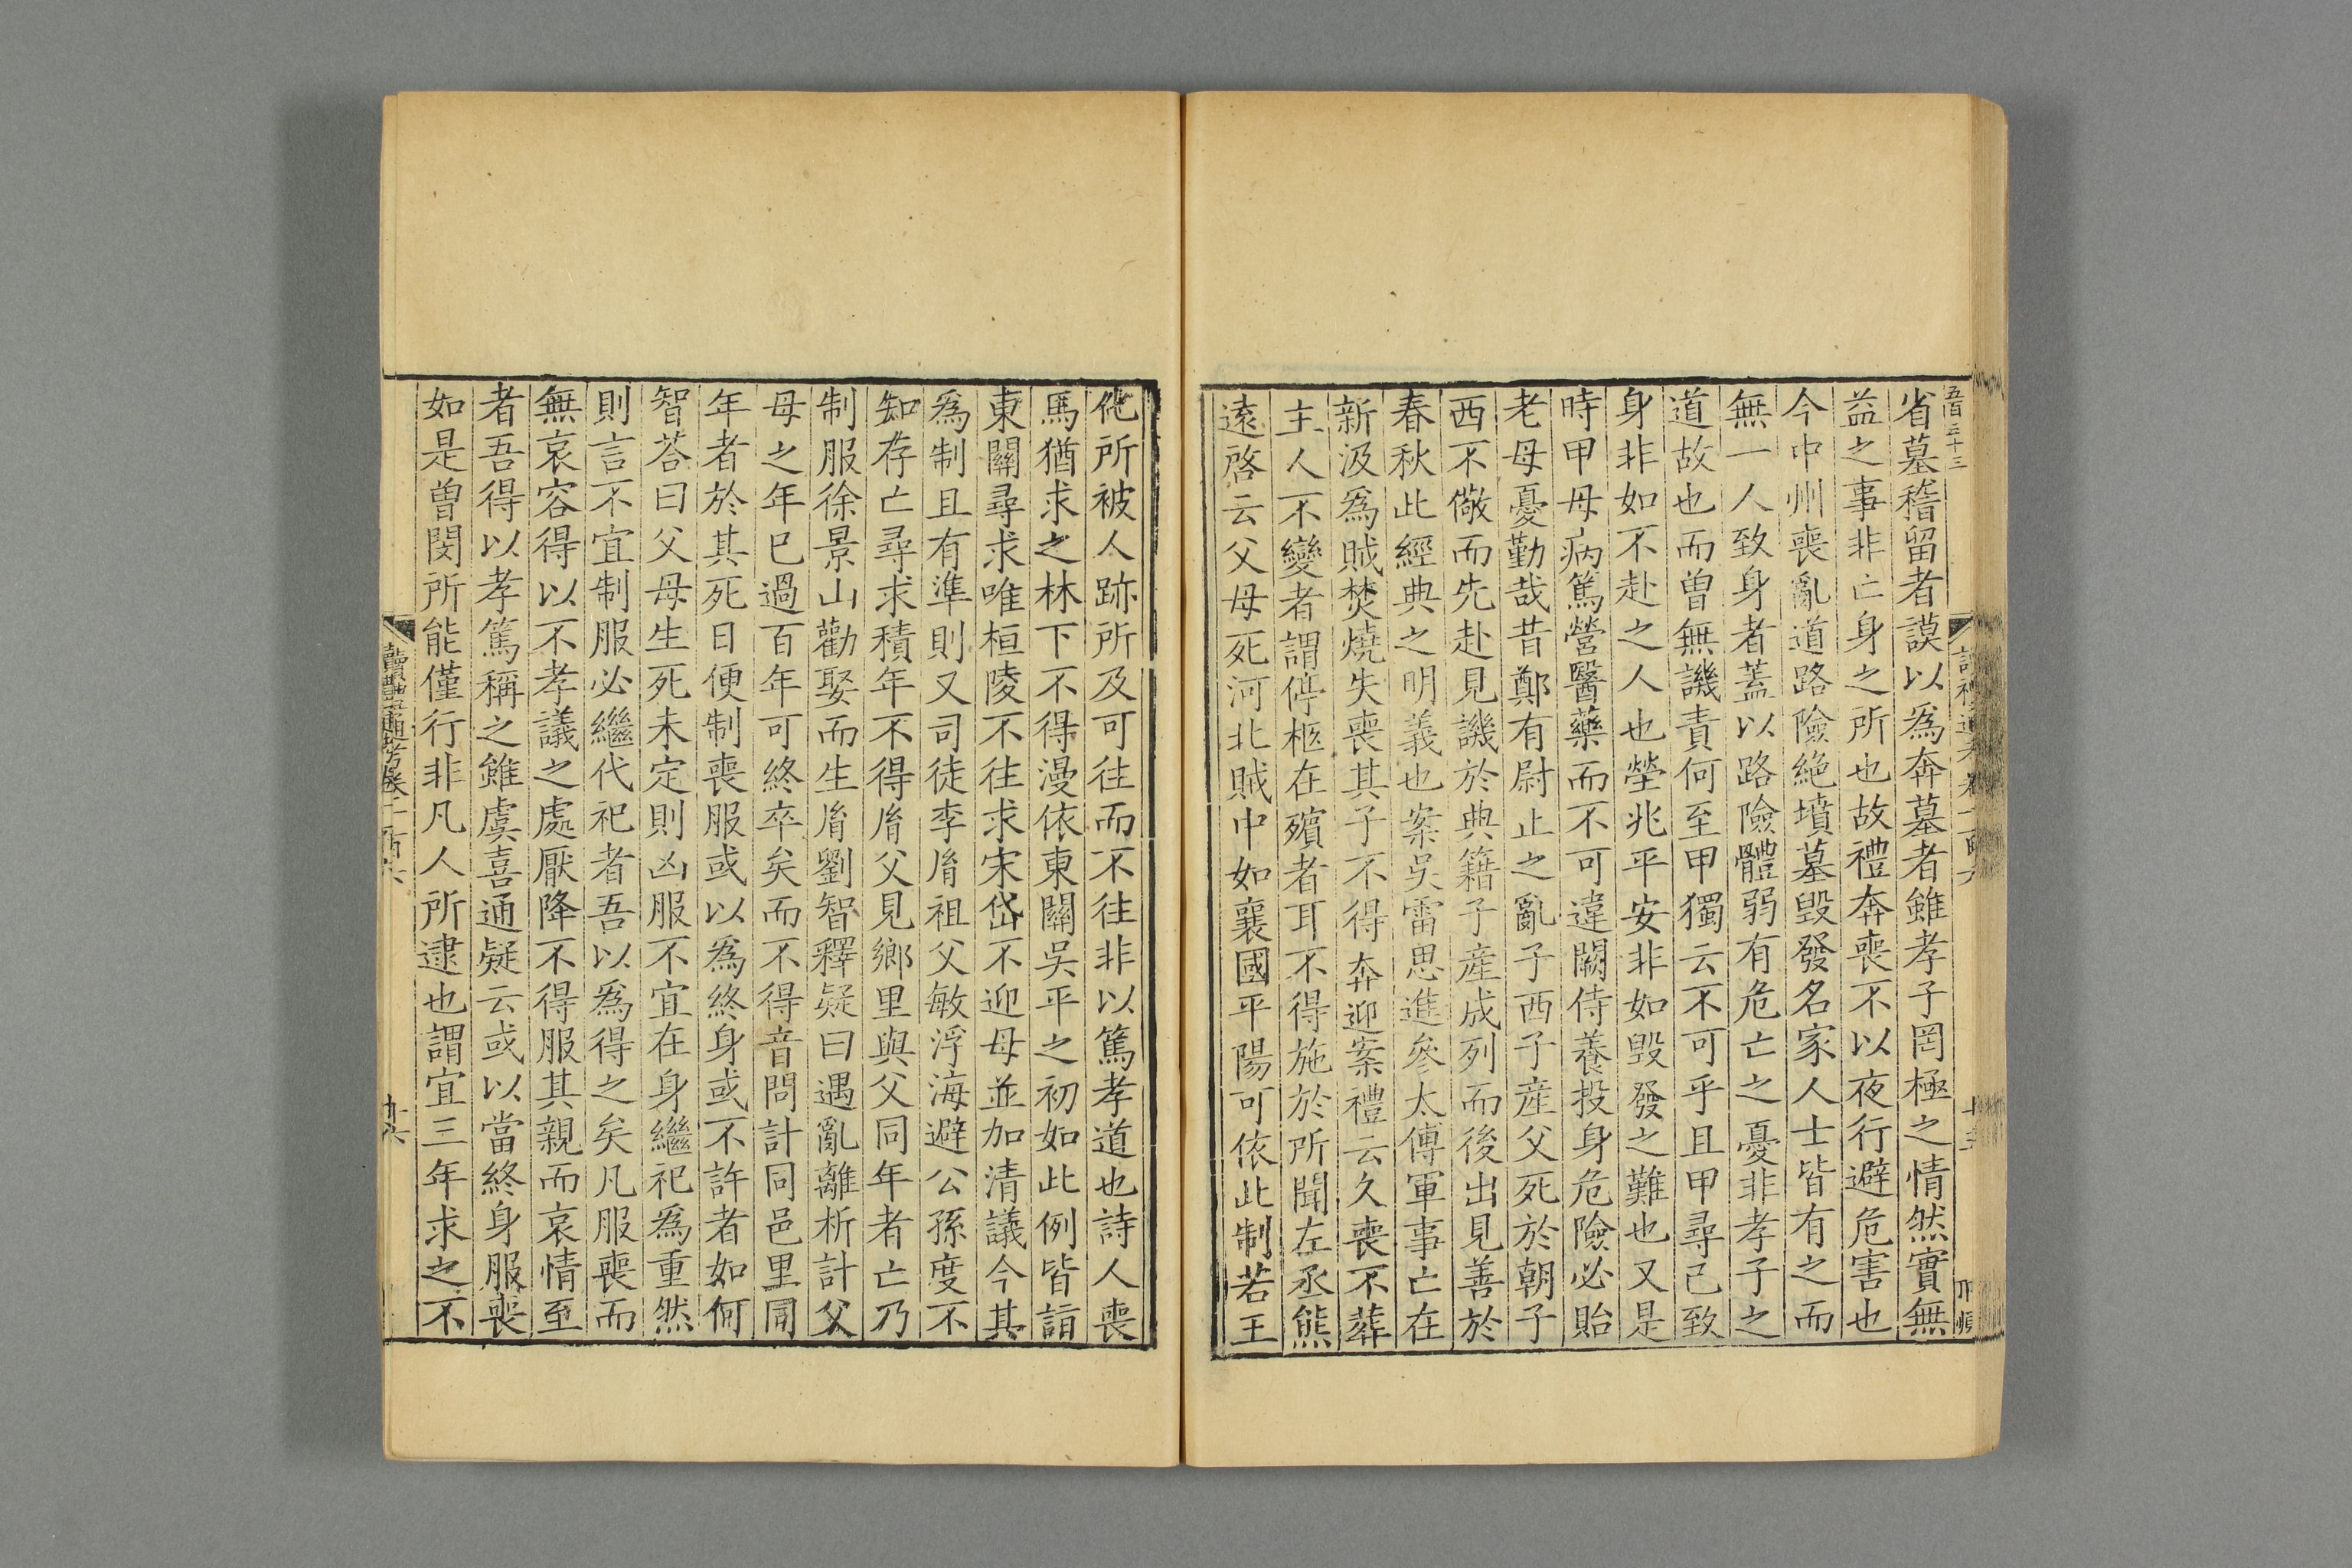 五百三十三
省墓稽留者謨以爲奔墓者雖孝子罔極之情然實無
益之事非亡身之所也故禮奔喪不以夜行避危害也
今中州喪亂道路險絶墳墓毀發名家人士皆有之而
無一人致身者蓋以路險體弱有危亡之憂非孝子之
道故也而曾無譏責何至甲獨云不可乎且甲尋己致
身非如不赴之人也塋兆平安非如毀發之難也又是
時甲母病篤營醫藥而不可違闕侍養投身危險必貽
老母憂勤哉昔鄭有尉止之亂子西子産父死於朝子
西不儆而先赴見譏於典籍子産成列而後出見善於
春秋此經典之明義也案吳雷思進參太傅軍事亡在
新汲爲賊焚燒失喪其子不得奔迎案禮云久喪不葬
主人不變者謂停柩在殯者耳不得施於所聞左丞熊
遠啓云父母死河北賊中如襄國平陽可依此制若王
化所被人跡所及可往而不往非以篤孝道也詩人喪
馬猶求之林下不得漫依東關吳平之初如此例皆詣
東關尋求唯桓陵不往求宋岱不迎母並加清議今其
爲制且有準則又司徒李胤祖父敏浮海避公孫度不
知存亡尋求積年不得胤父見鄉里與父同年者亡乃
制服徐景山勸娶而生胤劉智釋疑曰遇亂離析計父
母之年已過百年可終卒矣而不得音問計同邑里同
年者於其死日便制喪服或以爲終身或不許者如何
智荅曰父母生死未定則凶服不宜在身繼祀爲重然
則言不宜制服必繼代祀者吾以爲得之矣凡服喪而
無哀容得以不孝議之處厭降不得服其親而哀情至
者吾得以孝篤稱之雖虞喜通疑云或以當終身服喪
如是曾閔所能僅行非凡人所逮也謂宜三年求之不
讀禮通考卷一百六